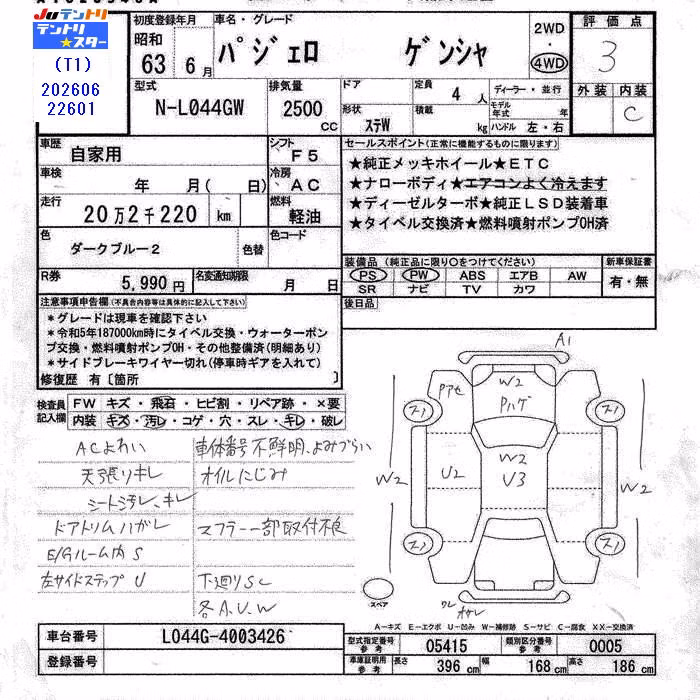 Juテントリ
テントリ
★スター
(T1)
202606
22601
初度登録年月
昭和
63 6月
車名・グレード
パジェロ ゲンシャ
2WD
・
4WD
評価点
3
外装 内装
C
型式
N-L044GW
排気量
2500 cc
ドア
形状
ステW
定員
4人
積載
kg
ディーラー・並行
モデル年式 年
ハンドル 左・右
車歴
自家用
シフト
F5
車検
年 月( 日)
冷房
AC
走行
20万2千220 km
燃料
軽油
色
ダークブルー2
色替
色コード
R券
5,990円
名変通知期限
月 日
セールスポイント(正常に機能するものに限ります)
★純正メッキホイール★ETC
★ナローボディ★エアコンよく冷えます
★ディーゼルターボ★純正LSD装着車
★タイベル交換済★燃料噴射ポンプOH済
装備品(純正品に限り○をつけてください)
PS PW ABS エアB AW
SR ナビ TV カワ
新車保証書
有・無
後日品
注意事項申告欄(不具合内容等は具体的に記入して下さい)
*グレードは現車を確認下さい
*令和5年187000km時にタイベル交換・ウォーターポン
プ交換・燃料噴射ポンプOH・その他整備済(明細あり)
*サイドブレーキワイヤー切れ(停車時ギアを入れて)
修復歴 有〔箇所 〕
検査員記入欄
FW キズ・飛石・ヒビ割・リペア跡・×要
内装 キズ・汚レ・コゲ・穴・スレ・キレ・破レ
ACよわい
車体番号不鮮明、よみづらい
天張りキレ
オイルにじみ
シート汚レ、キレ
ドアトリムハガレ
マフラー一部取付不良
E/Gルーム内 S
左サイドステップ U
下廻りSC
各A.U.W
A1
Pアセ
W2
Pハゲ
W2
U3
U2
W2
W2
スノ
スノ
スノ
スノ
スペア
ワレ
オサレ
A-キズ E-エクボ U-凹み W-補修跡 S-サビ C-腐食 XX-交換済
車台番号
L044G-4003426
登録番号
型式指定番号 参考
05415
類別区分番号 参考
0005
車庫証明用 参考
長さ 396 cm
幅 168 cm
高さ 186 cm